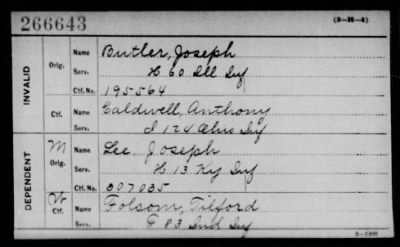 266643 (3-M-4)
INVALID Orig. Name Butler, Joseph
Serv. H 60 Ill Inf
Ctf. No. 195564
Ctf. Name Caldwell, Anthony
Serv. I 124 Ohio Inf
DEPENDENT M Orig. Name Lee, Joseph
Serv. H 13 Ky Inf
Ctf. No. 307035
W Ctf. Name Folsom, Tilford
Serv. F 83 Ind Inf